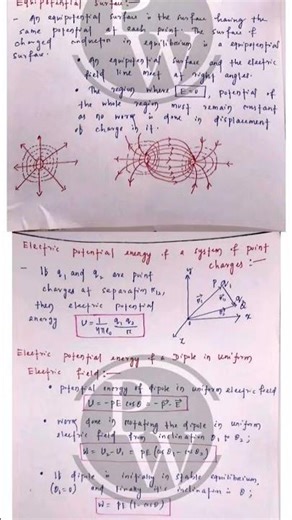 Equipotential Surface:-
- An equipotential surface is the surface having the
same potential at each point. The surface of
charged conductor in equilibrium is a equipotential
surface.
• An equipotential surface and the electric
field line meet at right angles.
• The region where E=0, potential of
the whole region must remain constant
as no work is done in displacement
of charge in it.
Electric potential energy of a system of point
charges:-
- If q1 and q2 are point
charges at separation r12,
then electric potential
energy U = 1/4πε0 q1 q2/r
Electric potential energy of a Dipole in Uniform
Electric field:-
• potential energy of dipole in uniform electric field
U = -PE cosθ = -P⃗.E⃗
• Work done in rotating the dipole in uniform
electric field from inclination θ1 to θ2;
W = U2-U1 = PE(cosθ1-cosθ2)
• If dipole is initially in stable equilibrium
(θ1=0) and finally it's inclination is θ;
W = PE(1-cosθ)